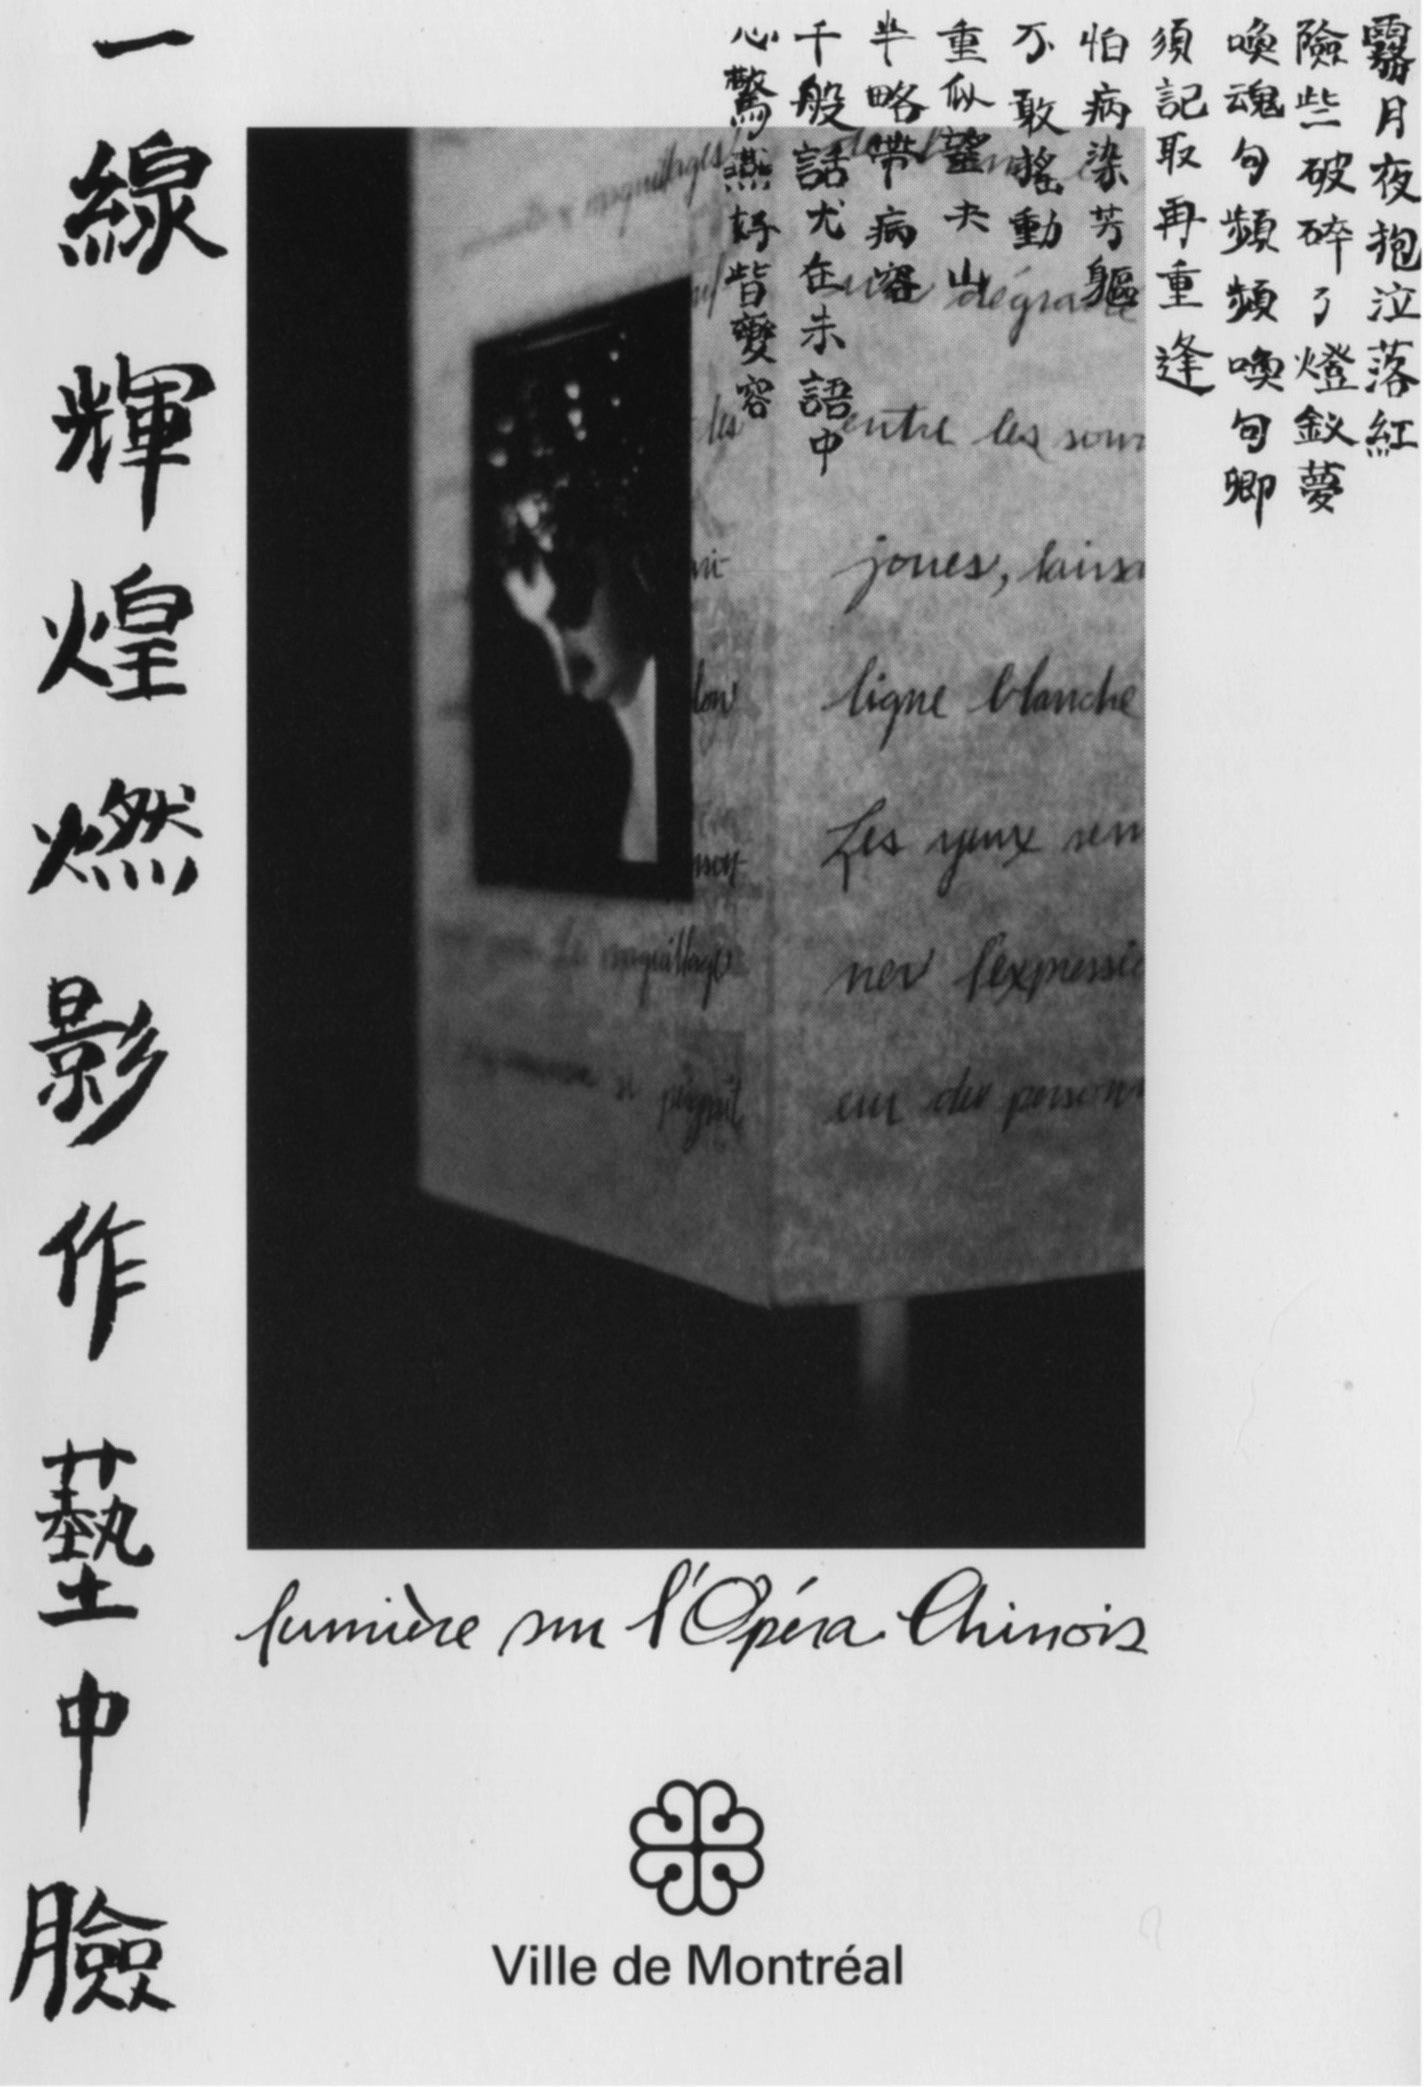 霧月夜抱泣落紅
險些破碎了燈釵夢
喚魂句頻頻喚句卿
須記取再重逢
怕病染芳軀
不敢搖動
重似望夫山
半略帶病容
千般話尤在未語中
心驚燕好皆變容
一線輝煌燃影作藝中臉
maquillages
dégradé
les
entre les sour
joues, laissa
ligne blanche
Les yeux sem
maquillage
ner l'expressio
se peignait
eur du personn
lumière sur l'Opéra Chinois
Ville de Montréal